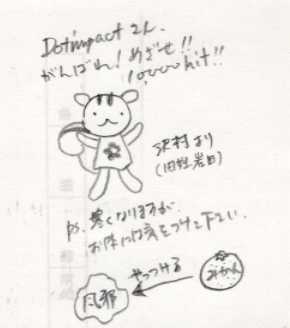 Dotimpact さん.
がんばれ! めざせ!!
10000 hit!!
沢村より
(旧姓岩田)
ps. 寒くなりますが.
お体には気をつけて下さい.
やっつける
みかん
風邪